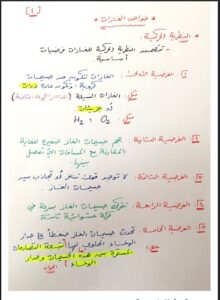 [1]
* خواص الغازات *
* النظرية الحركية :
- تتضمن النظرية الحركية للغازات فرضيات
أساسية
1 الفرضية الأولى : الغازات تتكون من جسيمات
كروية وتكون عادة ذرات
مثل : الغازات النبيلة (عناصر المجموعة الثامنة)
أو جزيئات
مثل : O2 ، H2
2 الفرضية الثانية : حجم جسيمات الغاز صغير للغاية
بالمقارنة مع المسافات التي تفصل
بينها
3 الفرضية الثالثة : لا توجد قوى تنافر أو تجاذب بين
جسيمات الغاز .
4 الفرضية الرابعة : تتحرك جسيمات الغاز بسرعة في
حركة عشوائية ثابتة
5 الفرضية الخامسة : تحدث جسيمات الغاز ضغطاً على جدار
الوعاء الحاوي لها نتيجة التصادمات
المستمرة بين هذه الجسيمات وجدار
الوعاء